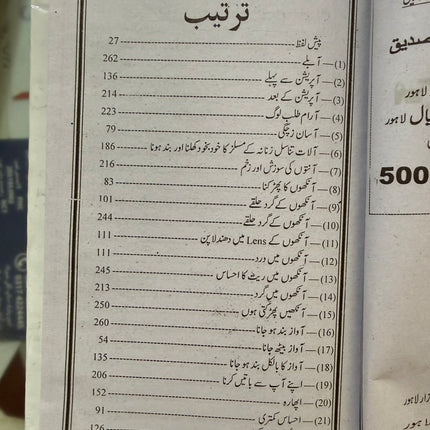 ترتیب
پیش لفظ 27
(1) — آبلے 262
(2) — آپریشن سے پہلے 136
(3) — آپریشن کے بعد 214
(4) — آرام طلب لوگ 223
(5) — آسان زچگی 79
(6) — آلات تناسل زنانہ کے مسلز کا خودبخود کھلنا اور بند ہونا 186
(7) — آنتوں کی سوزش اور زخم 216
(8) — آنکھوں کا پھڑکنا 83
(9) — آنکھوں کے گرد حلقے 101
(10) — آنکھوں کے گرد حلقے 244
(11) — آنکھوں کے Lens میں دھندلا پن 111
(12) — آنکھوں میں درد 111
(13) — آنکھوں میں ریت کا احساس 245
(14) — آنکھوں میں گرد 213
(15) — آنکھیں پھڑکتی ہوں 250
(16) — آواز بند ہو جانا 260
(17) — آواز بیٹھ جانا 54
(18) — آواز کا بالکل بند ہو جانا 135
(19) — اپنے آپ سے باتیں کرنا 206
(20) — اپھارہ 152
(21) — احساس کمتری 91
126
صدیق
لاہور
یال لاہور
500
لاہور